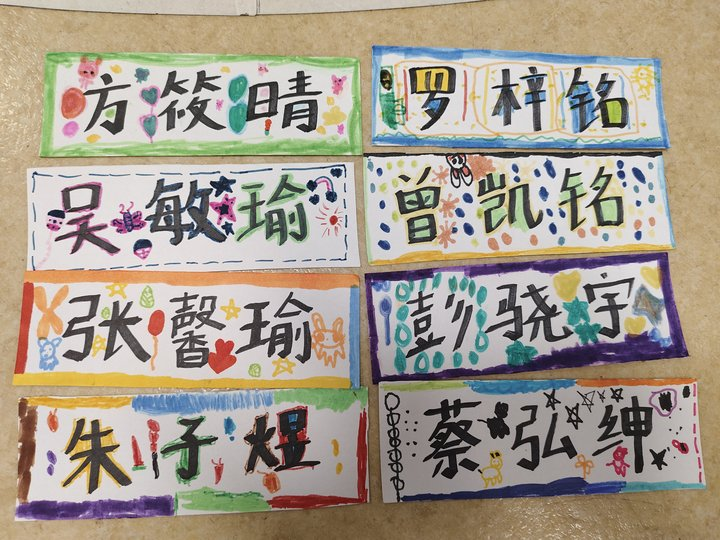 方筱晴
罗梓铭
吴敏瑜
曾凯铭
张馨瑜
彭骁宇
朱子煜
蔡弘绅